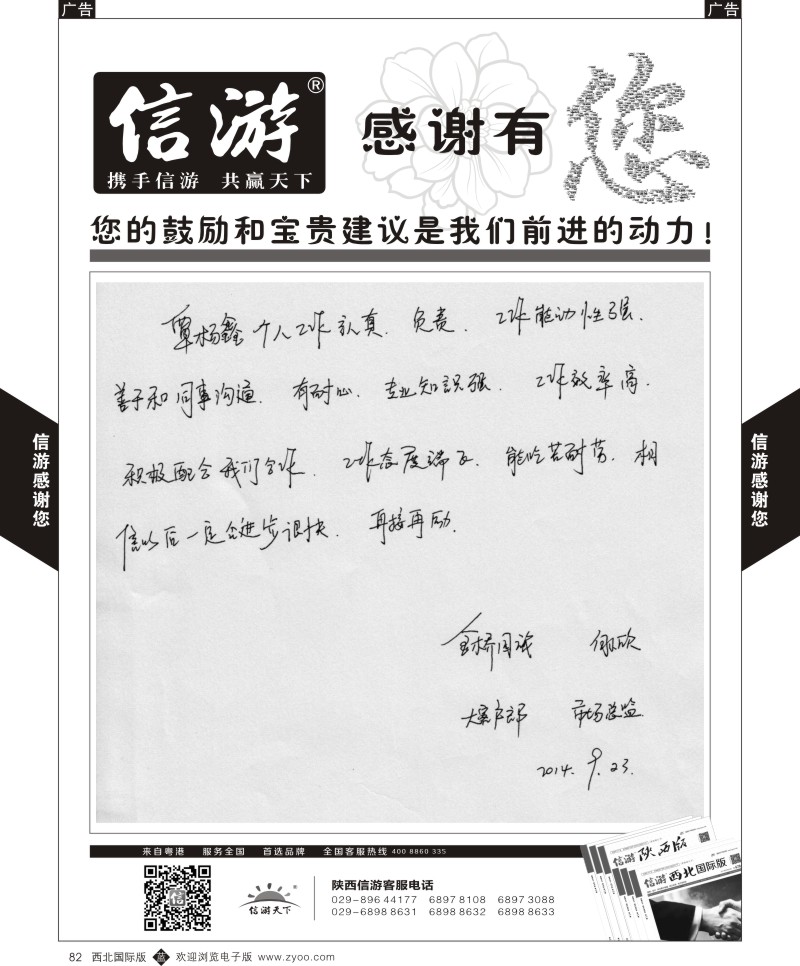 广告
广告
信游®
携手信游 共赢天下
感谢有
您
您的鼓励和宝贵建议是我们前进的动力!
信游感谢您
信游感谢您
覃杨鑫个人工作认真. 负责. 工作能动性强.
善于和同事沟通. 有耐心. 专业知识强. 工作效率高.
积极配合我们合作. 工作态度端正. 能吃苦耐劳. 相
信以后一定会进步很快. 再接再励.
金桥国旅
大客户部 市场总监
2014. 9. 23.
来自粤港 服务全国 首选品牌 全国客服热线 400 8860 335
信游 陕西版
信游 西北国际版
信
信游天下®
陕西信游客服电话
029-896 44177 6897 8108 6897 3088
029-6898 8631 6898 8632 6898 8633
82 西北国际版 蓝 欢迎浏览电子版 www.zyoo.com